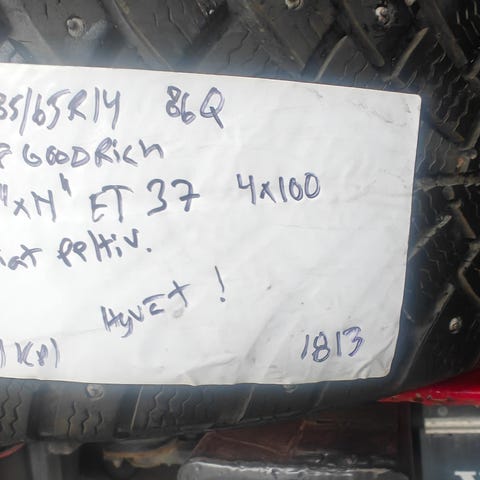 85/65R14 86Q
F GOODRICH
"x14" ET 37 4x100
iat peltiv.
HyvEt !
) Kpl
1813